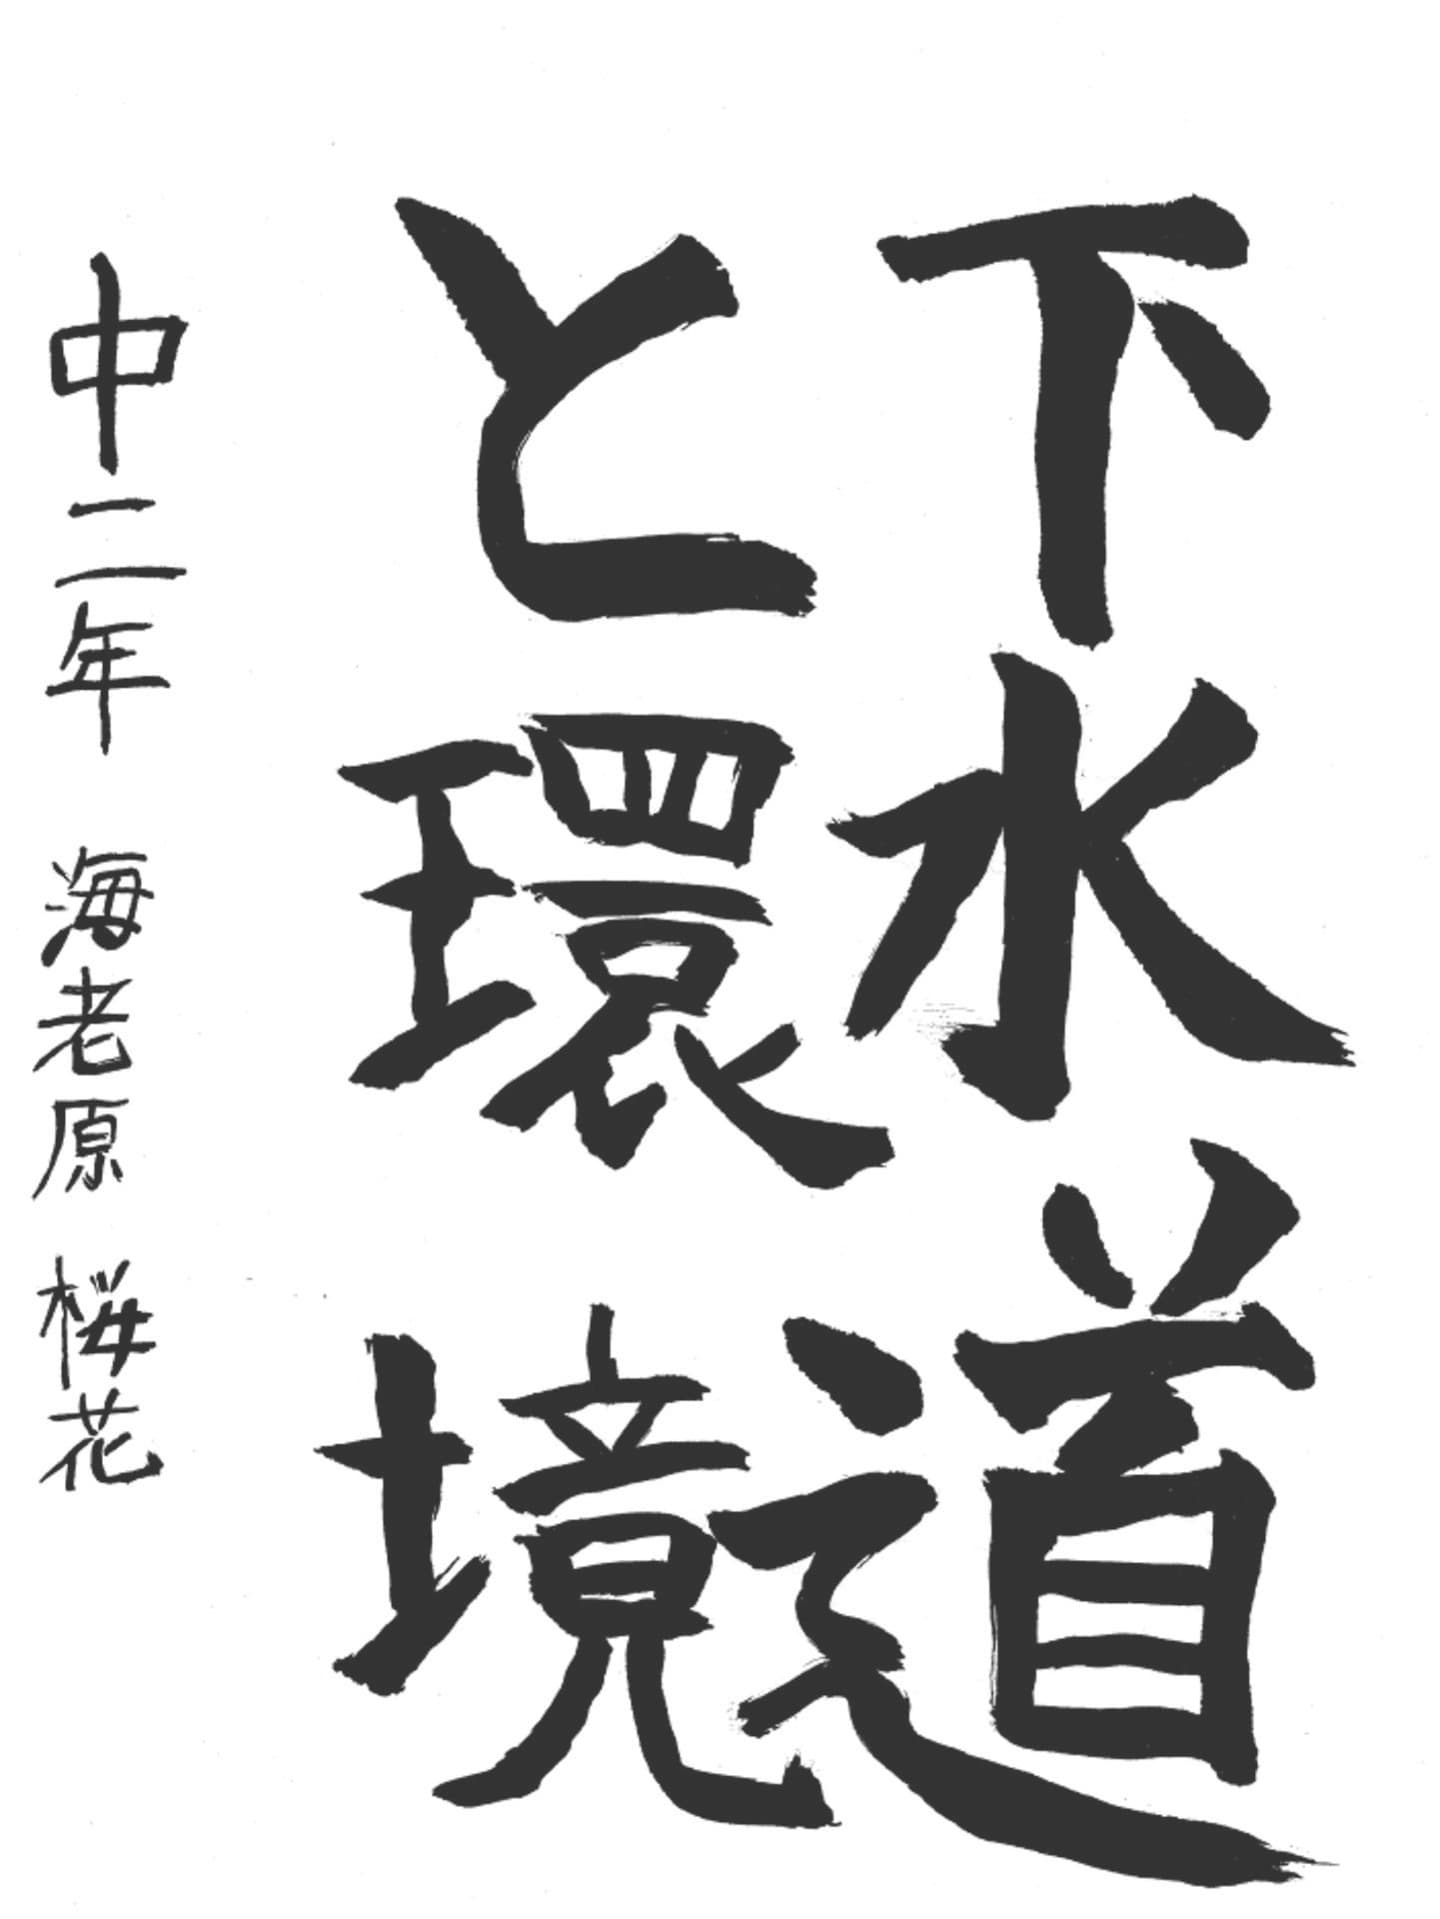 下水道
と環境
中二年 海老原 桜花